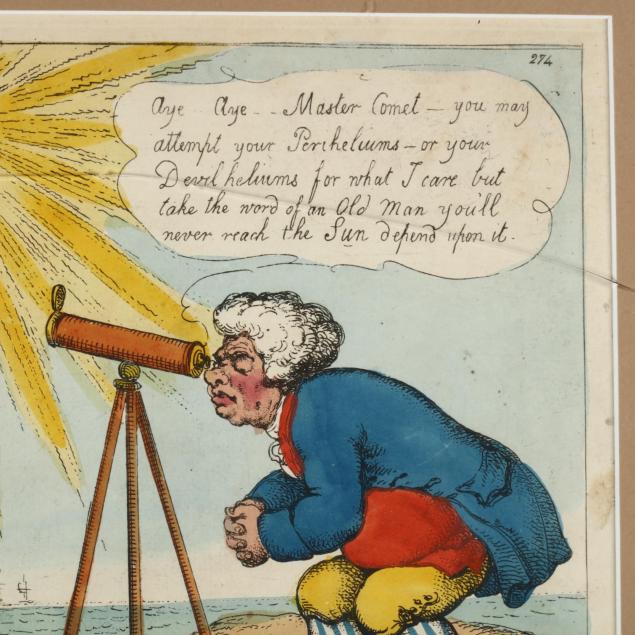 274
Aye Aye -- Master Comet — you may
attempt your Periheliums — or your
Devil heliums for what I care but
take the word of an Old Man you'll
never reach the Sun depend upon it.